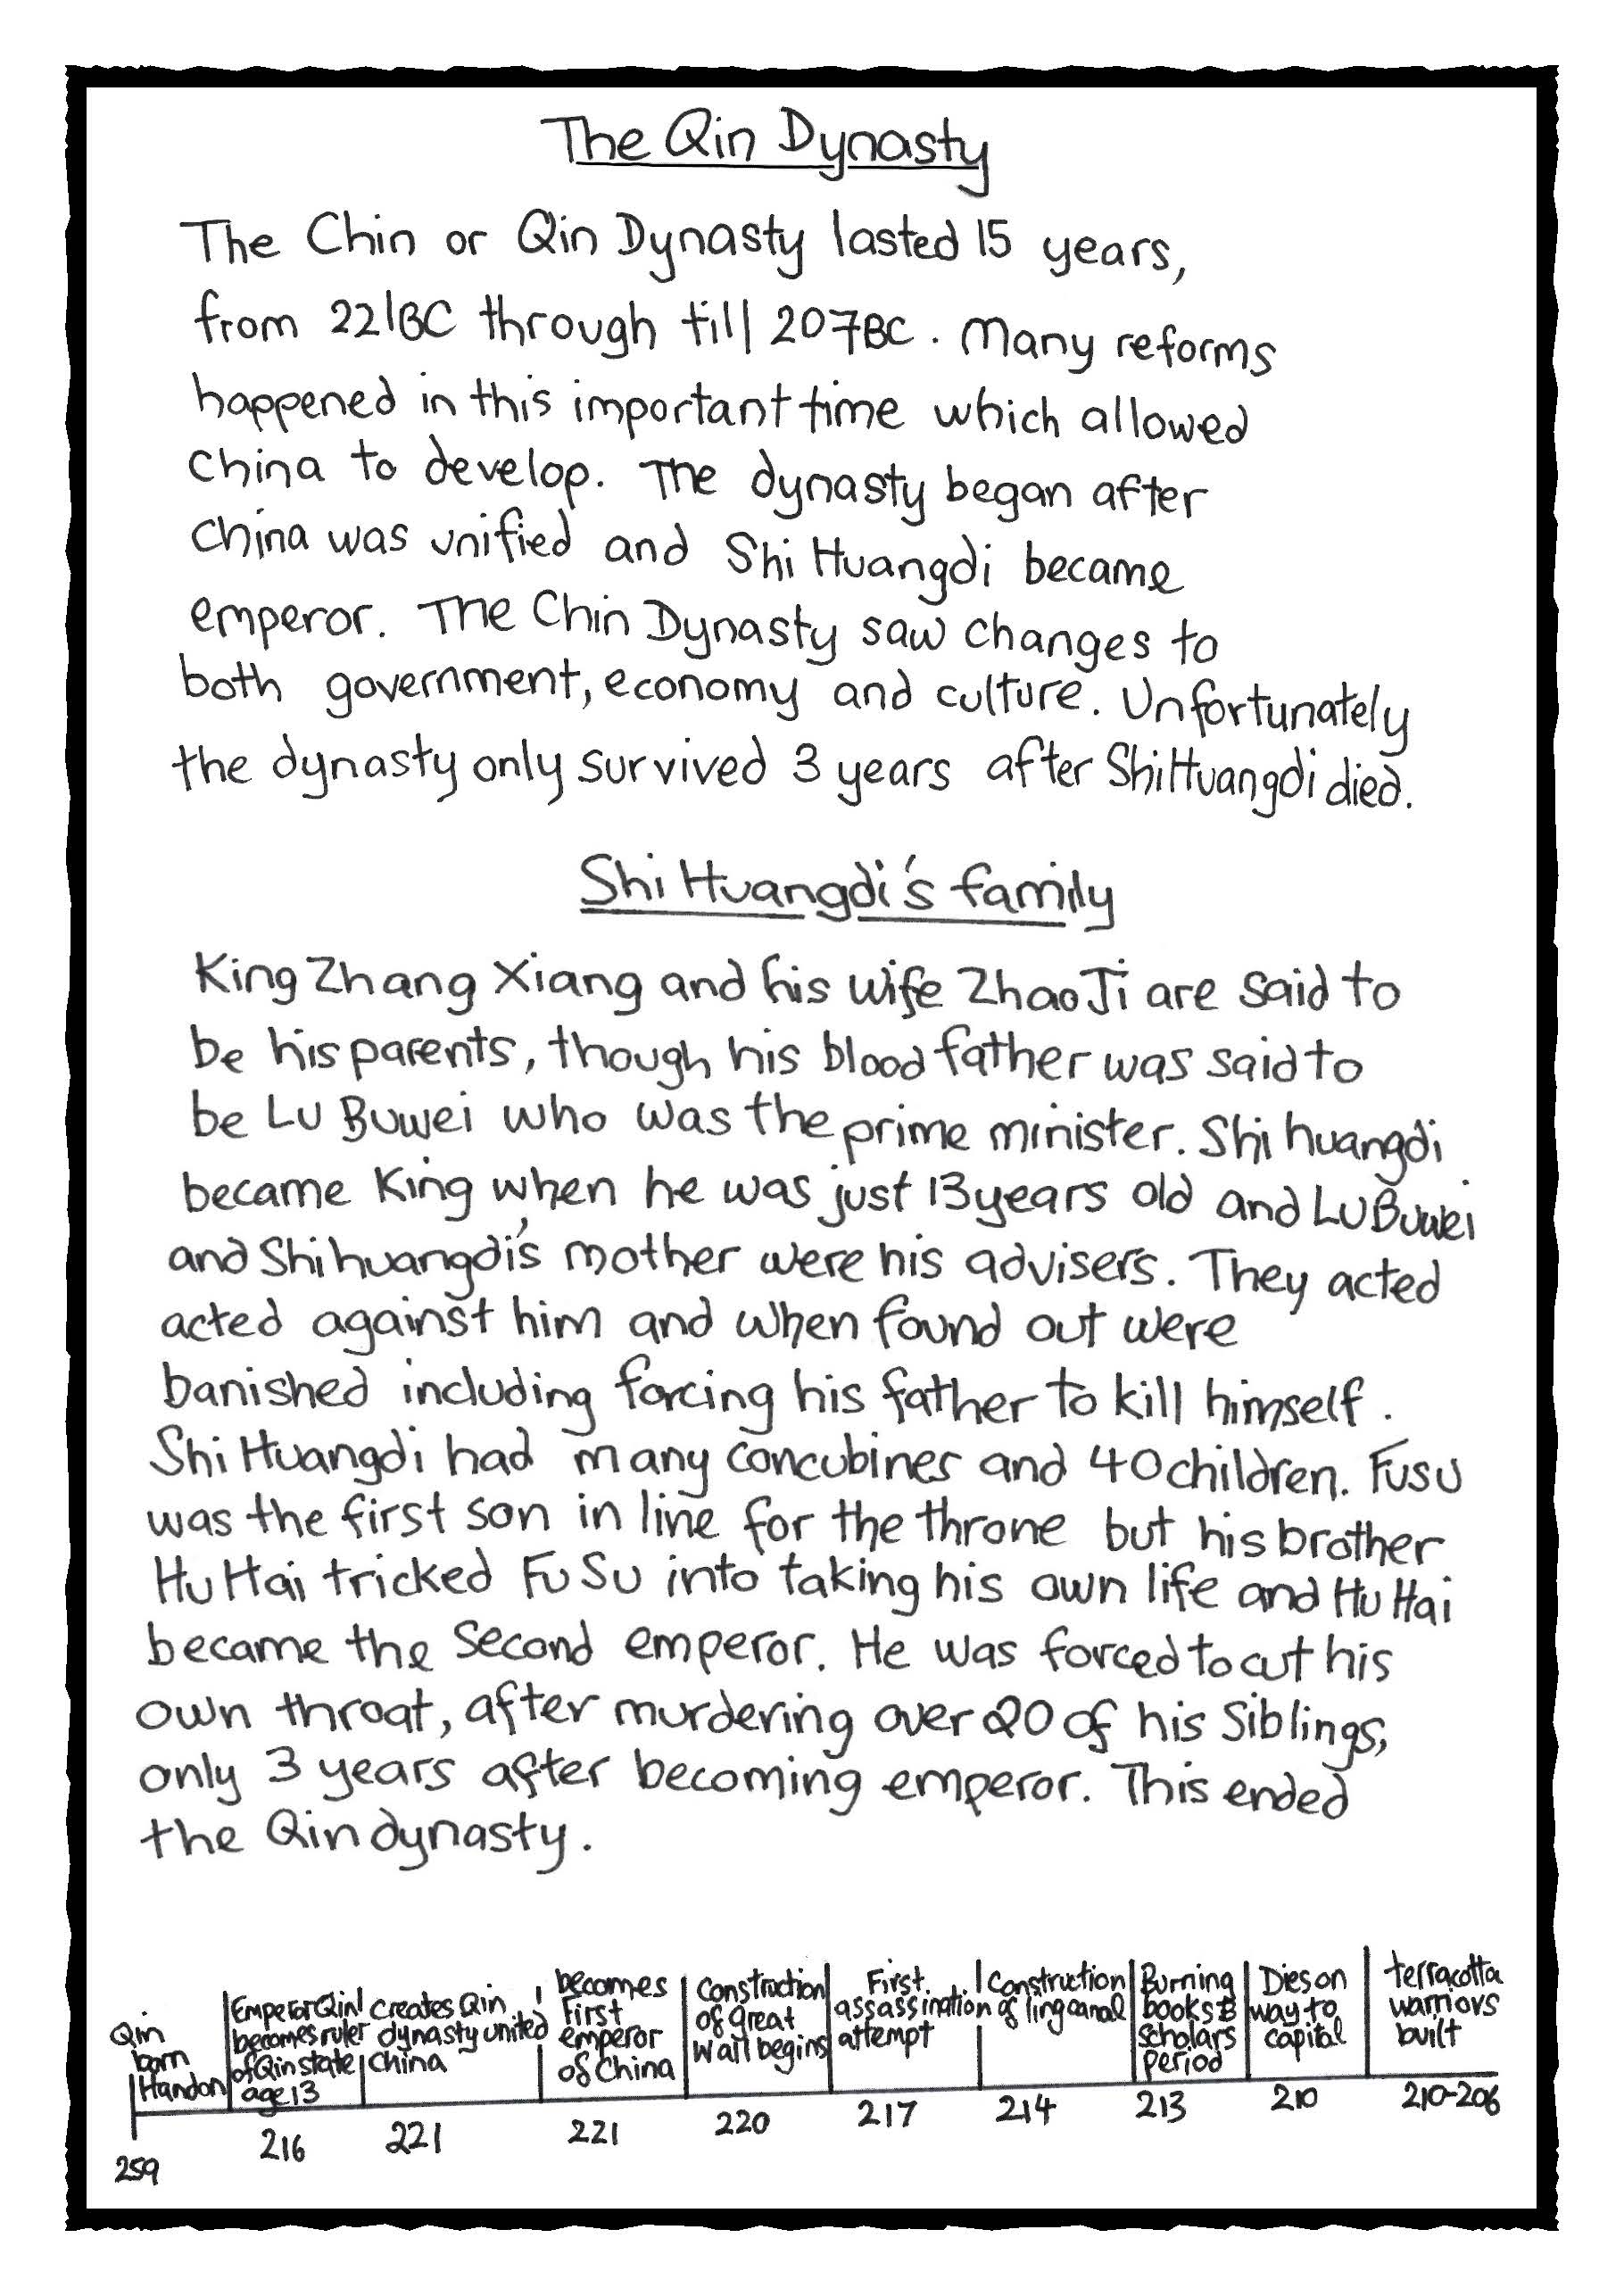 The Qin Dynasty
The Chin or Qin Dynasty lasted 15 years,
from 221BC through till 207BC. Many reforms
happened in this important time which allowed
China to develop. The dynasty began after
China was unified and Shi Huangdi became
emperor. The Chin Dynasty saw changes to
both government, economy and culture. Unfortunately
the dynasty only survived 3 years after Shi Huangdi died.
Shi Huangdi's family
King Zhang Xiang and his wife Zhao Ji are said to
be his parents, though his blood father was said to
be Lu Buwei who was the prime minister. Shi huangdi
became King when he was just 13 years old and Lu Buwei
and Shi huangdi's mother were his advisers. They acted
acted against him and when found out were
banished including forcing his father to kill himself.
Shi Huangdi had many concubines and 40 children. Fusu
was the first son in line for the throne but his brother
Hu Hai tricked Fu Su into taking his own life and Hu Hai
became the second emperor. He was forced to cut his
own throat, after murdering over 20 of his siblings,
only 3 years after becoming emperor. This ended
the Qin dynasty.
Qin
born
Handon
259
Emperor Qin
becomes ruler
of Qin state
age 13
216
creates Qin
dynasty united
China
221
becomes
First
emperor
of China
221
Construction
of Great
Wall begins
220
First
assassination
attempt
217
Construction
of ling canal
214
Burning
books &
scholars
period
213
Dies on
way to
capital
210
terracotta
warriors
built
210-206